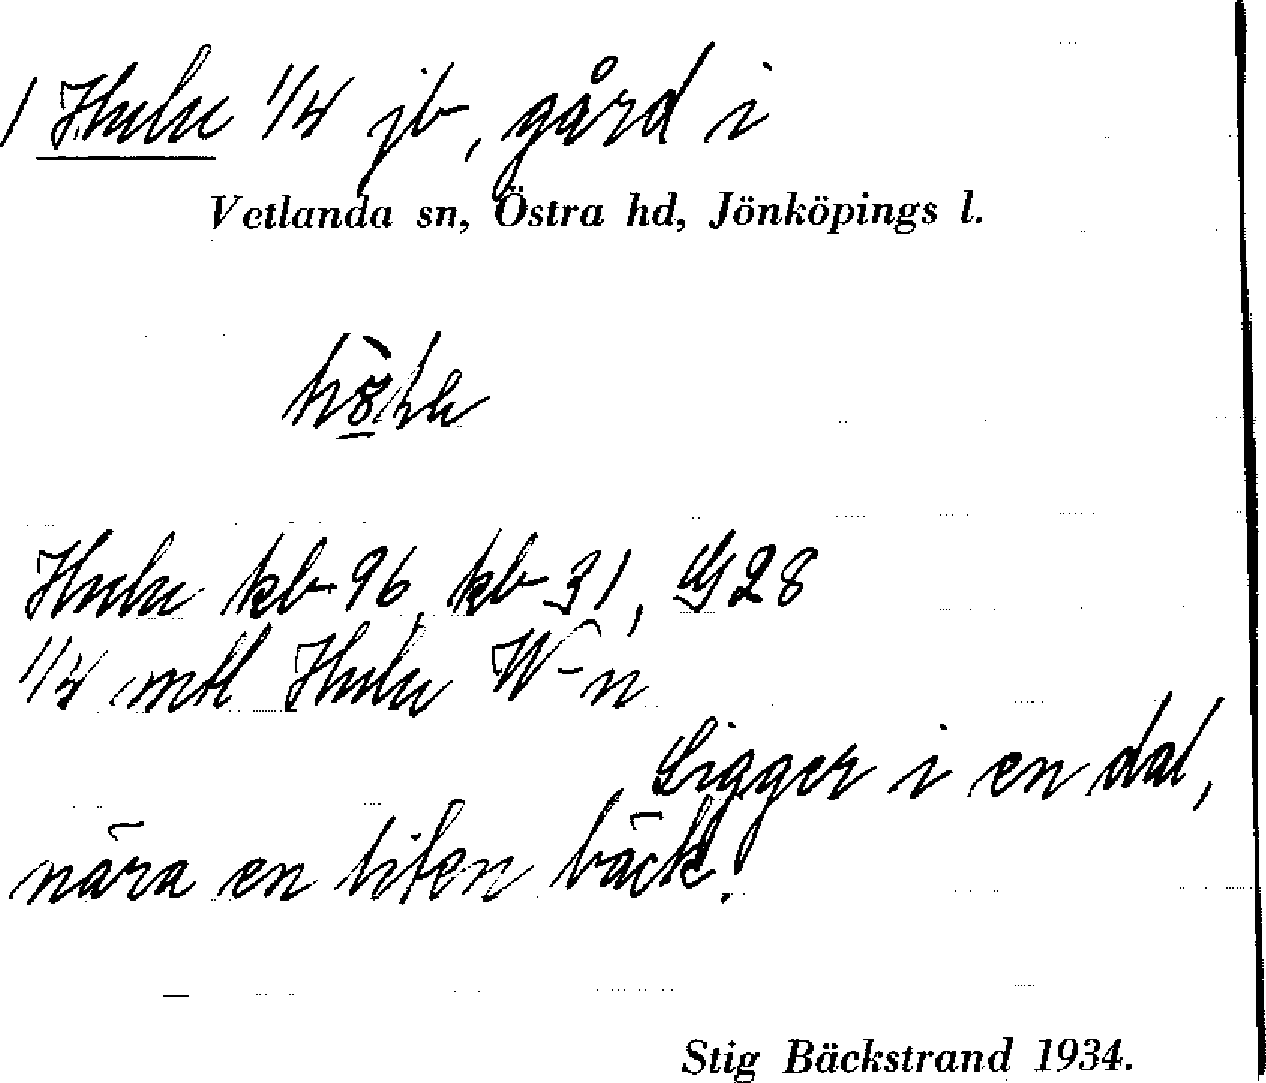 1 Hulu 1/4 jb, gård i
Vetlanda sn, Östra hd, Jönköpings l.
Hulu kb 96, kb 31, G 28
1/4 mtl Hulu W-n
Ligger i en dal,
nära en liten bäck.
Stig Bäckstrand 1934.